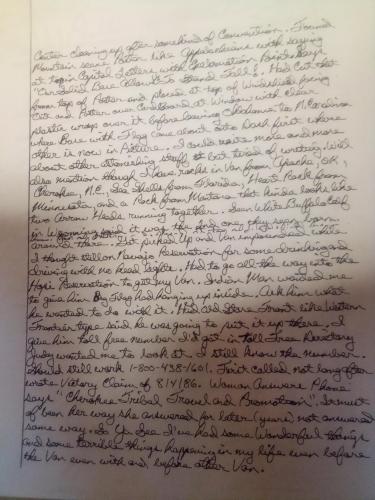 Center cleaning up after some kind of Convention. Found
Mountain scene Poster like Appalachians with saying
at top in Capital Letters with Exclamation Point. Says
"Our Solid Base Allows Us To Stand Tall!". Had Cut that
from top of Poster and placed at top of Windshield facing
Out and Poster over Cardboard at Window with clear
plastic wrap over it before leaving Oklahoma to N. Carolina
where Base with Flag came about. So to back first where
other is now in Picture. I could write more and more
about other Astonishing stuff but tired of writing. Will
also mention though I have rocks in Van from Apache, OK.,
Cherokee, N.C., Sea Shells from Florida, Heart Rock from
Minnesota, and a Rock from Montana that kinda looks like
two Arrow Heads running together. Seen White Buffalo Calf
in Wyoming said it was the 2nd one they seen born
around there. Got picked Up and Van impounded while
I thought still on Navajo Reservation for some drinking and
driving with no head lights. Had to go all the way into the
Hopi Reservation to get my Van. Indian Man wanted me
to give him Big Flag had hanging up inside. Ask him what
he wanted to do with it. Had Old Store Front like Western
Frontier type said he was going to put it up there. I
give him toll free number I'd got in toll Free Directory
Judy wanted me to look at. I still know the number.
Should still work 1-800-438-1601. First called not long after
wrote Victory Claim of 8/4/86. Woman Answere Phone
says "Cherokee Tribal Travel and Promotion". It must
of been her way she answered for later (years) not answered
same way. So Ya See I've had some Wonderful things
and some terrible things happening in my life even before
the Van even with and, before other Van.